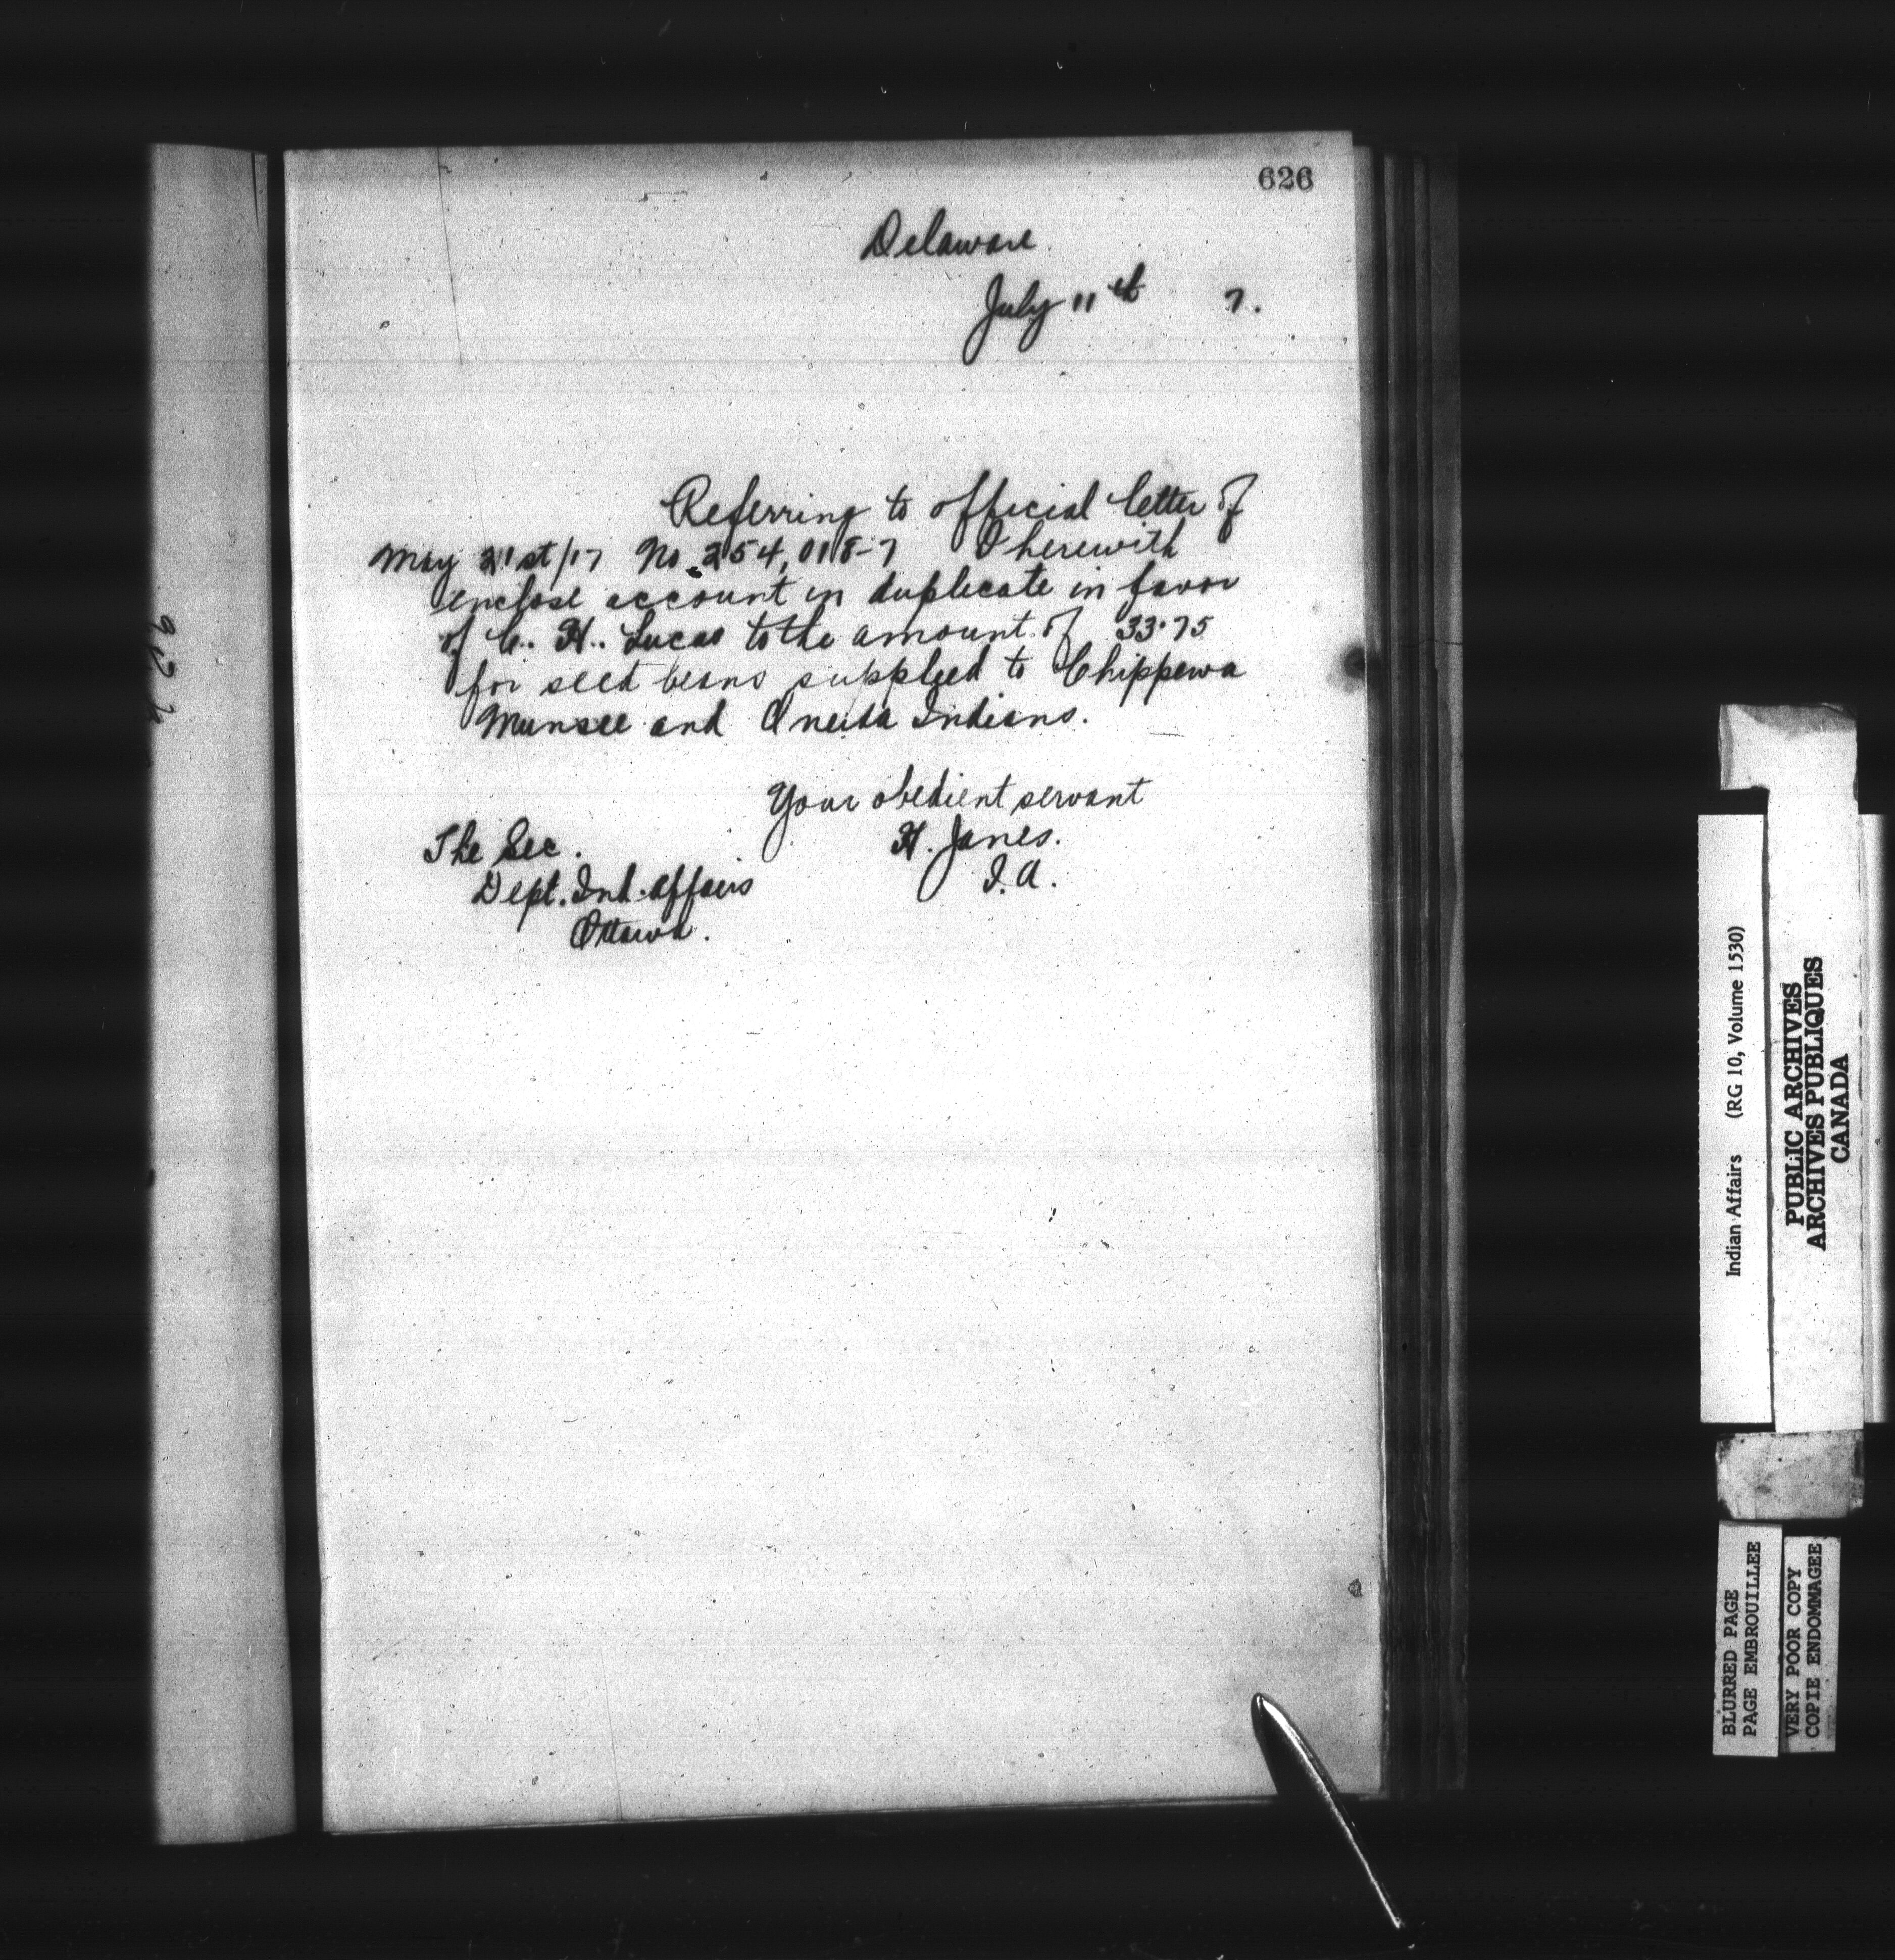 626
Delaware
July 11th 7.
Referring to official letter of
May 21st/17 No. 254,018-7 I herewith
enclose account in duplicate in favor
of C. H. Lucas to the amount of 33.75
for seed beans supplied to Chippewa
Munsee and Oneida Indians.
Your obedient servant
H. Jones.
I.A.
The Sec.
Dept. Ind. Affairs
Ottawa.
Indian Affairs (RG 10, Volume 1530)
PUBLIC ARCHIVES
ARCHIVES PUBLIQUES
CANADA
BLURRED PAGE
PAGE EMBROUILLEE
VERY POOR COPY
COPIE ENDOMMAGEE